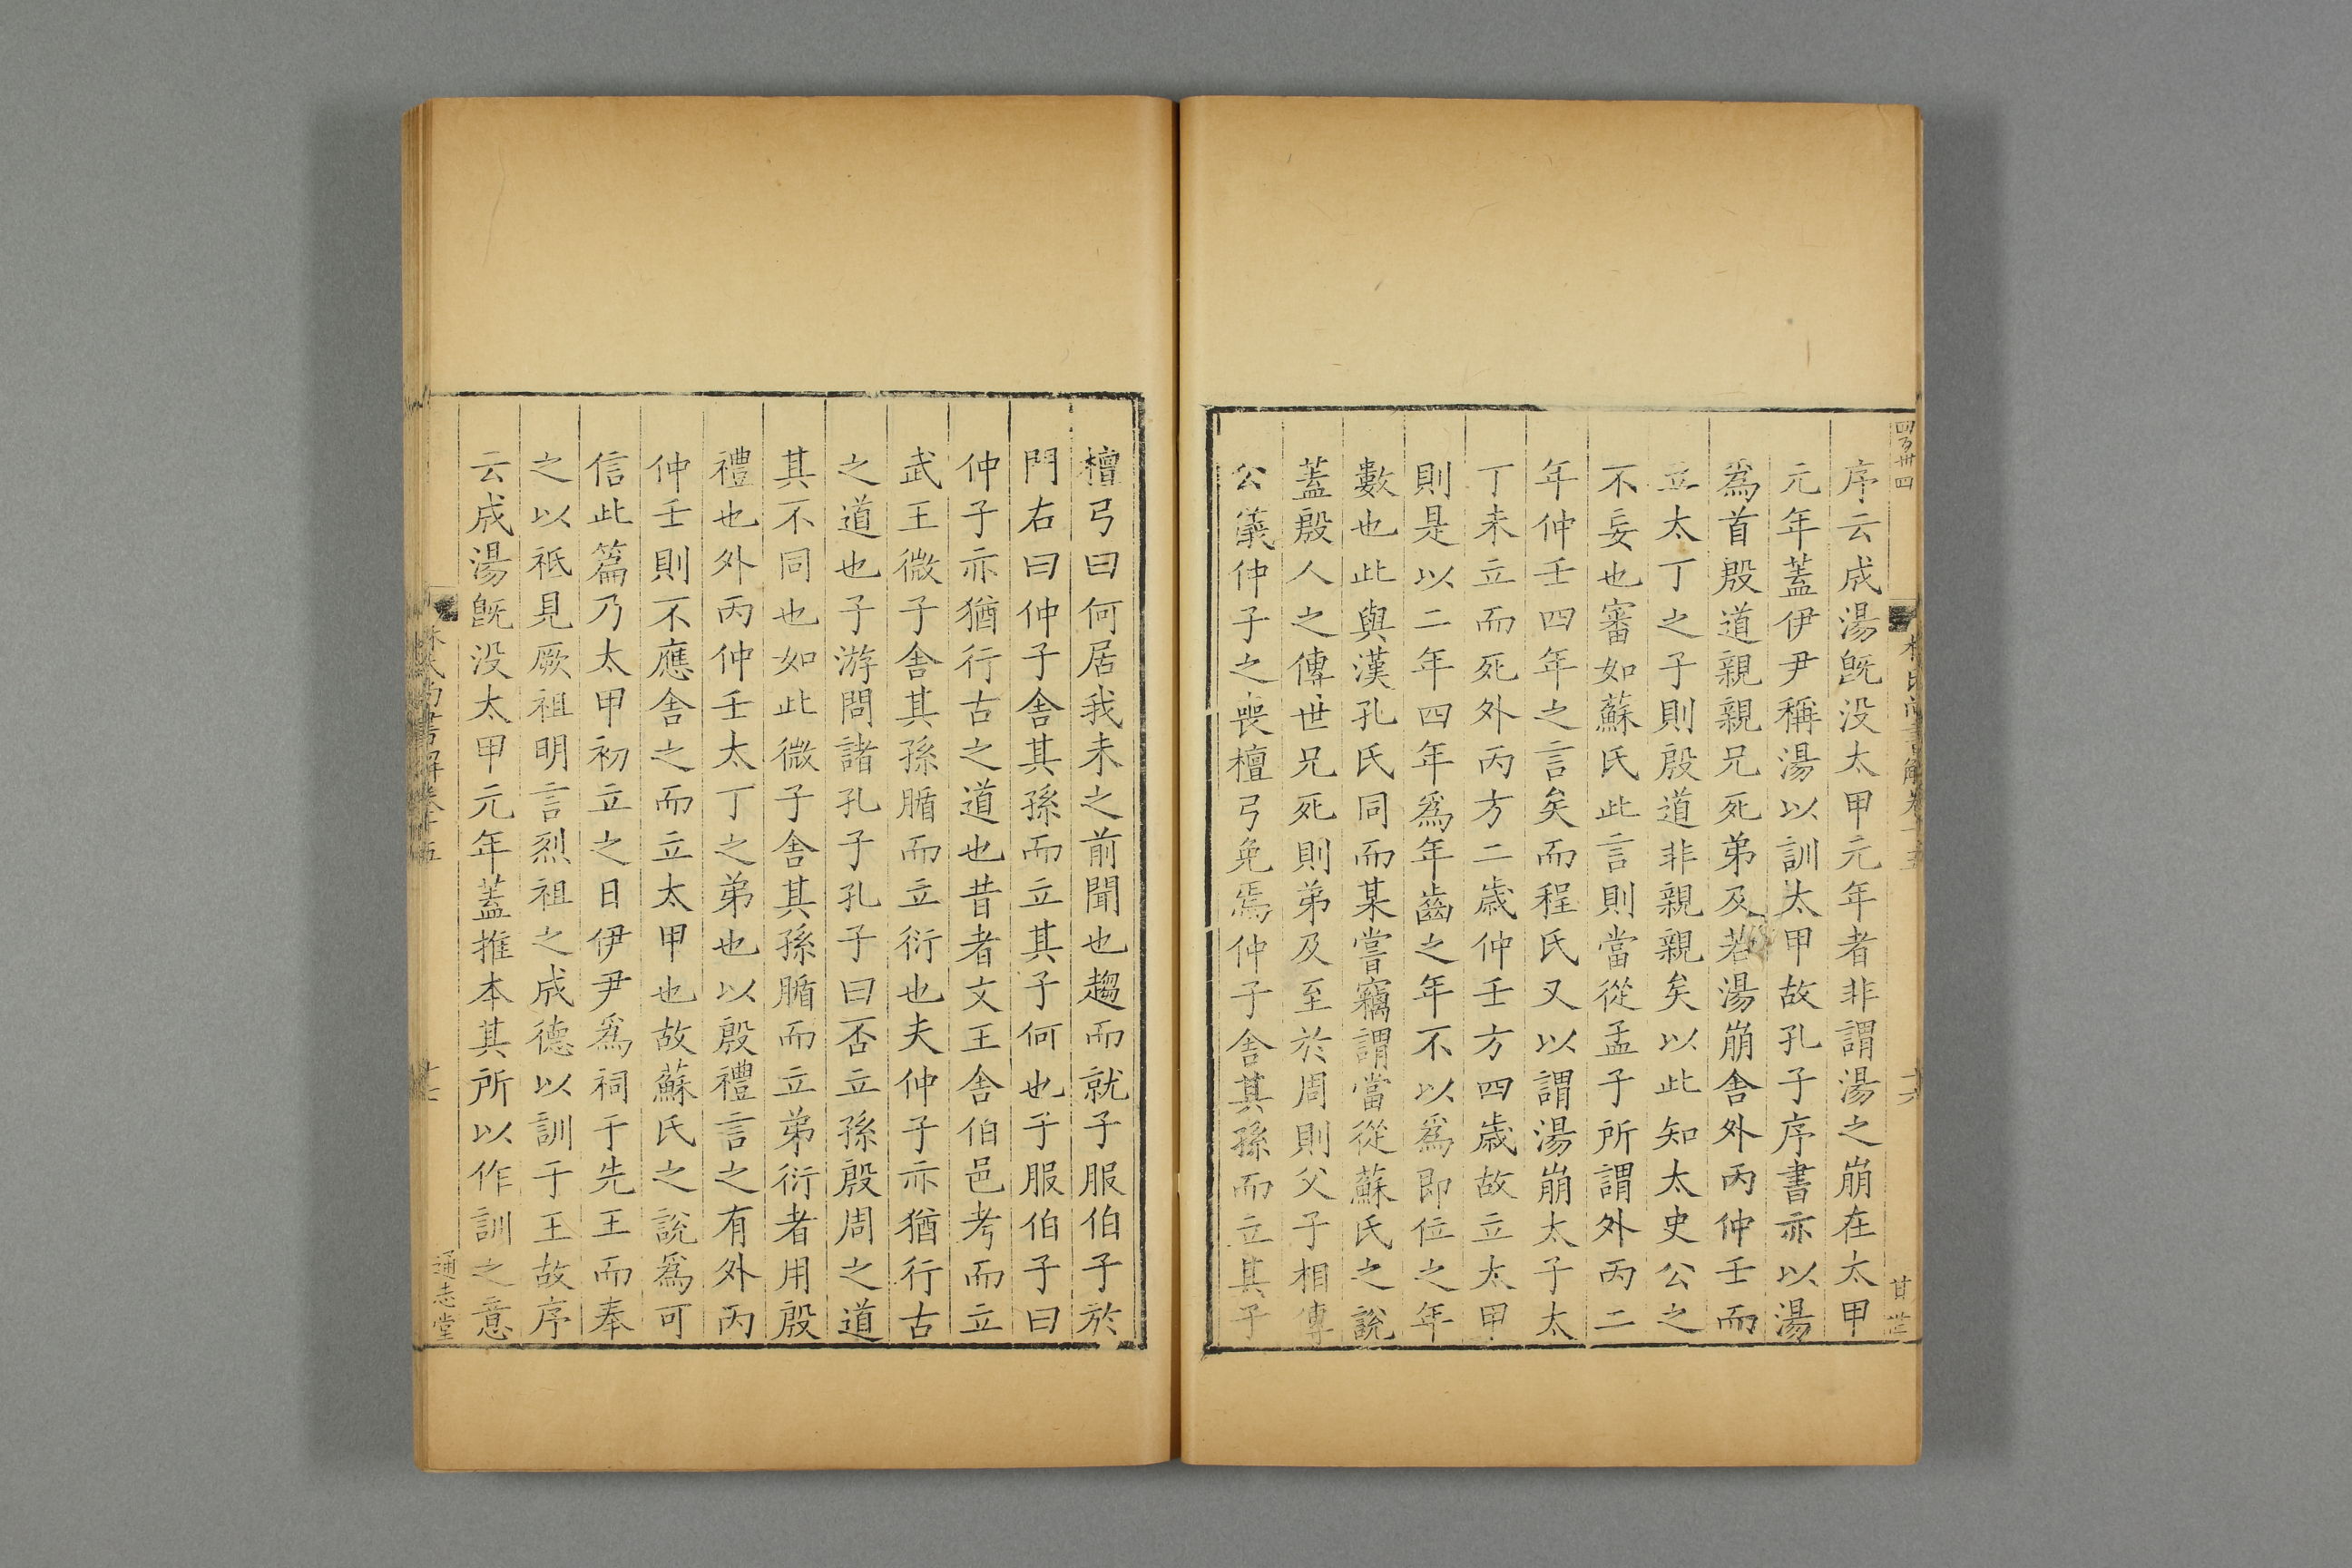 四百卅四
林氏尚書解卷十五
十六
甘世
序云成湯旣没太甲元年者非謂湯之崩在太甲
元年蓋伊尹稱湯以訓太甲故孔子序書亦以湯
爲首殷道親親兄死弟及若湯崩舍外丙仲壬而
立太丁之子則殷道非親親矣以此知太史公之
不妄也審如蘇氏此言則當從孟子所謂外丙二
年仲壬四年之言矣而程氏又以謂湯崩太子太
丁未立而死外丙方二歲仲壬方四歲故立太甲
則是以二年四年爲年齒之年不以爲即位之年
數也此與漢孔氏同而某嘗竊謂當從蘇氏之說
蓋殷人之傳世兄死則弟及至於周則父子相傳
公儀仲子之喪檀弓免焉仲子舍其孫而立其子
檀弓曰何居我未之前聞也趨而就子服伯子於
門右曰仲子舍其孫而立其子何也子服伯子曰
仲子亦猶行古之道也昔者文王舍伯邑考而立
武王微子舍其孫腯而立衍也夫仲子亦猶行古
之道也子游問諸孔子孔子曰否立孫殷周之道
其不同也如此微子舍其孫腯而立弟衍者用殷
禮也外丙仲壬太丁之弟也以殷禮言之有外丙
仲壬則不應舍之而立太甲也故蘇氏之說爲可
信此篇乃太甲初立之日伊尹爲祠于先王而奉
之以祗見厥祖明言烈祖之成德以訓于王故序
云成湯旣没太甲元年蓋推本其所以作訓之意
林氏尚書解卷十五
通志堂